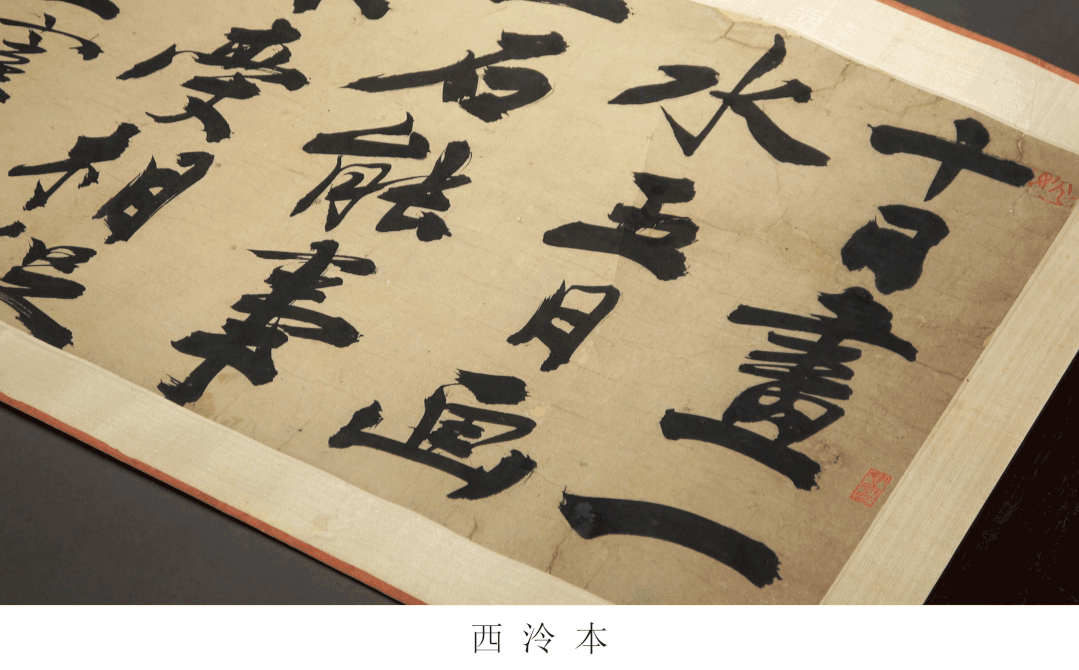 十日畫一
水五日画
一石能事
受相促
西泠本